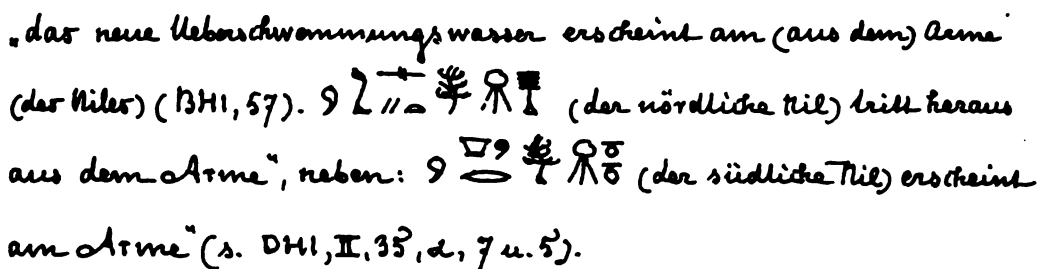 „das neue Ueberschwemmungswasser erscheint am (aus dem) Arme
(des Niles) (BHI, 57). (der nördliche Nil) tritt heraus
aus dem Arme“, neben: (der südliche Nil) erscheint
am Arme“ (s. DHI, II, 35, α, 7 u. 5).